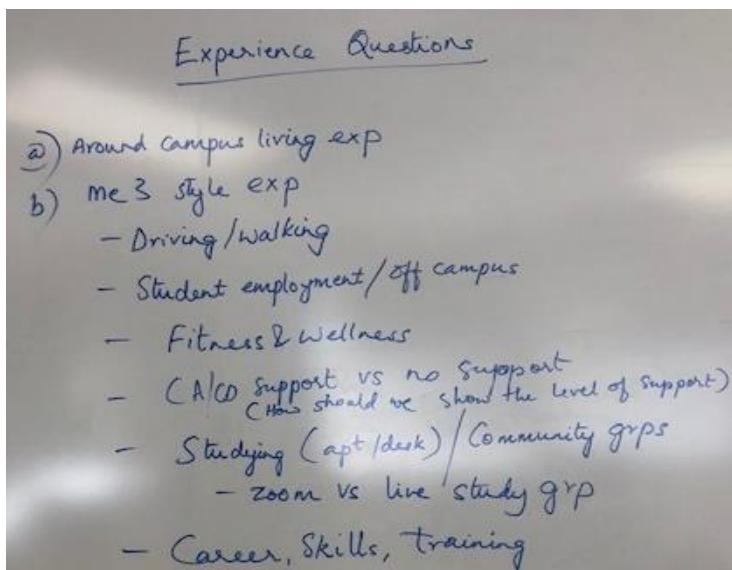 Experience Questions
a) Around campus living exp
b) me 3 style exp
- Driving/walking
- Student employment/off campus
- Fitness & Wellness
- CA/CD support vs no support
(How should we show the level of support)
- Studying (apt/desk)/Community grps
- zoom vs live study grp
- Career, Skills, training